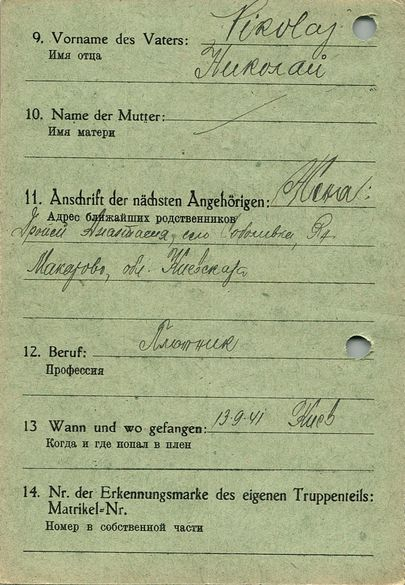 9. Vorname des Vaters: Nikolaj
Имя отца Николай
10. Name der Mutter:
Имя матери
11. Anschrift der nächsten Angehörigen: Жена:
Адрес ближайших родственников
Анастасия, село
Макарово, обл. Киевская
12. Beruf: Плотник
Профессия
13 Wann und wo gefangen: 13-9-41 Киев
Когда и где попал в плен
14. Nr. der Erkennungsmarke des eigenen Truppenteils:
Matrikel-Nr.
Номер в собственной части